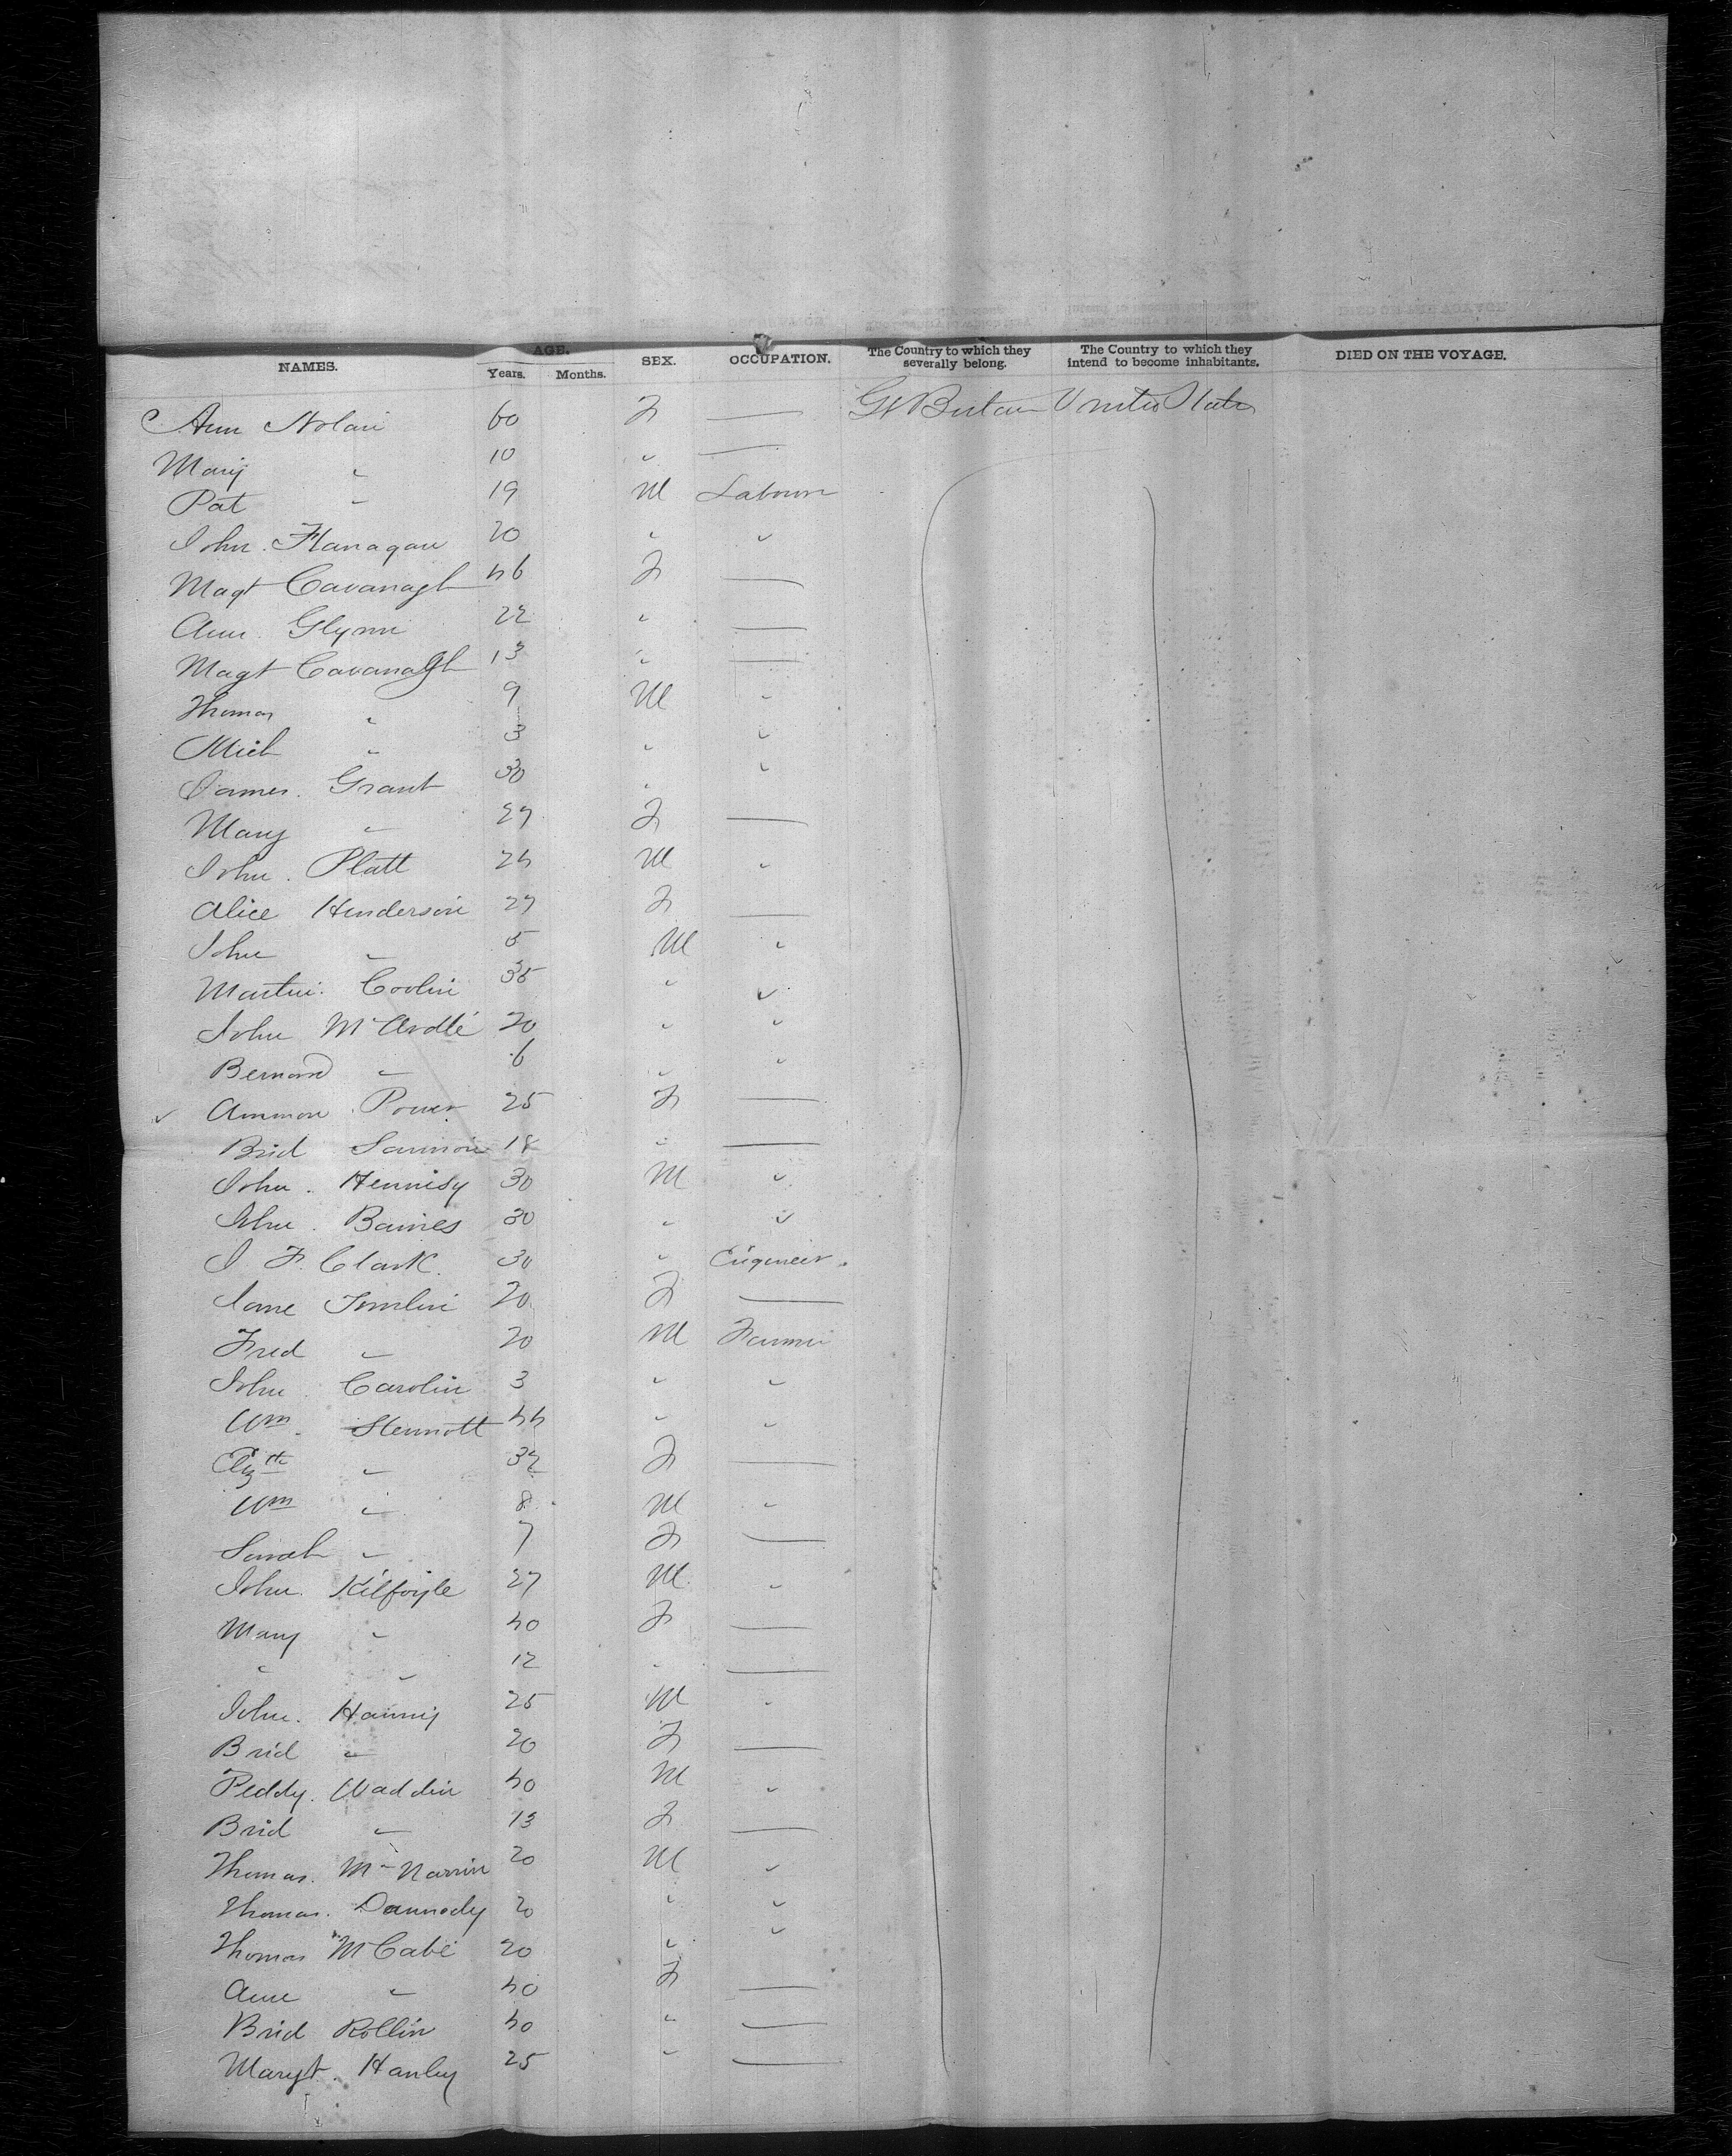 NAMES. AGE. Years. Months. SEX. OCCUPATION. The Country to which they severally belong. The Country to which they intend to become inhabitants. DIED ON THE VOYAGE.
Ann Nolan 60 F — Gt Britain United States
Mary " 10 " —
Pat " 19 M Labourer
John Flanagan 20 " "
Magt Cavanagh 46 F —
Ann Glynn 22 " —
Magt Cavanagh 13 " —
Thomas " 9 M "
Mich " 3 " "
James Grant 30 " "
Mary " 27 F —
John Platt 24 M "
Alice Henderson 27 F —
John " 5 M "
Martin 35 " "
John McArdle 20 " "
Bernard " 6 " "
Power 25 F —
Brid 18 " —
John Hennisy 30 M "
John Baines 30 " "
J F. Clark. 30 " Engineer.
Jane Tomlin 20 F —
Fred " 20 M Farmer
John Carolin 3 " "
Wm. 44 " "
Elizth " 32 F —
Wm " 8 M "
Sarah " 7 F —
John Kilfoyle 27 M "
Mary " 40 F —
" " 12 " —
John. 25 M "
Brid " 20 F —
Peddy. Waddin 40 M "
Brid " 13 F —
Thomas. 20 M "
Thomas. 20 " "
Thomas McCabe 20 " "
Ann " 40 F —
Brid Rollin 40 " —
Margt. Hanley 25 " —